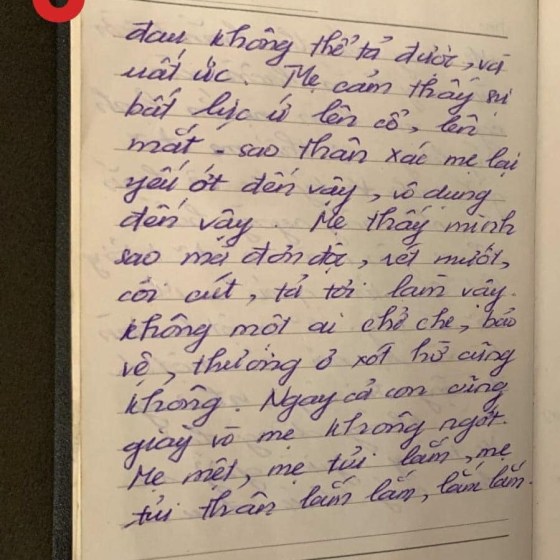 đau không thể tả được, và
uất ức. Mẹ cảm thấy sự
bất lực ứ lên cổ, lên
mắt - sao thân xác mẹ lại
yếu ớt đến vậy, vô dụng
đến vậy. Mẹ thấy mình
sao mà đơn độc, rét mướt,
côi cút, tả tơi lắm vậy.
không một ai chở che, bảo
vệ, thương ở xót hờ cũng
không. Ngay cả con cũng
giày vò mẹ không ngớt.
Mẹ mệt, mẹ tủi lắm, mẹ
tủi thân lắm lắm, lắm lắm.